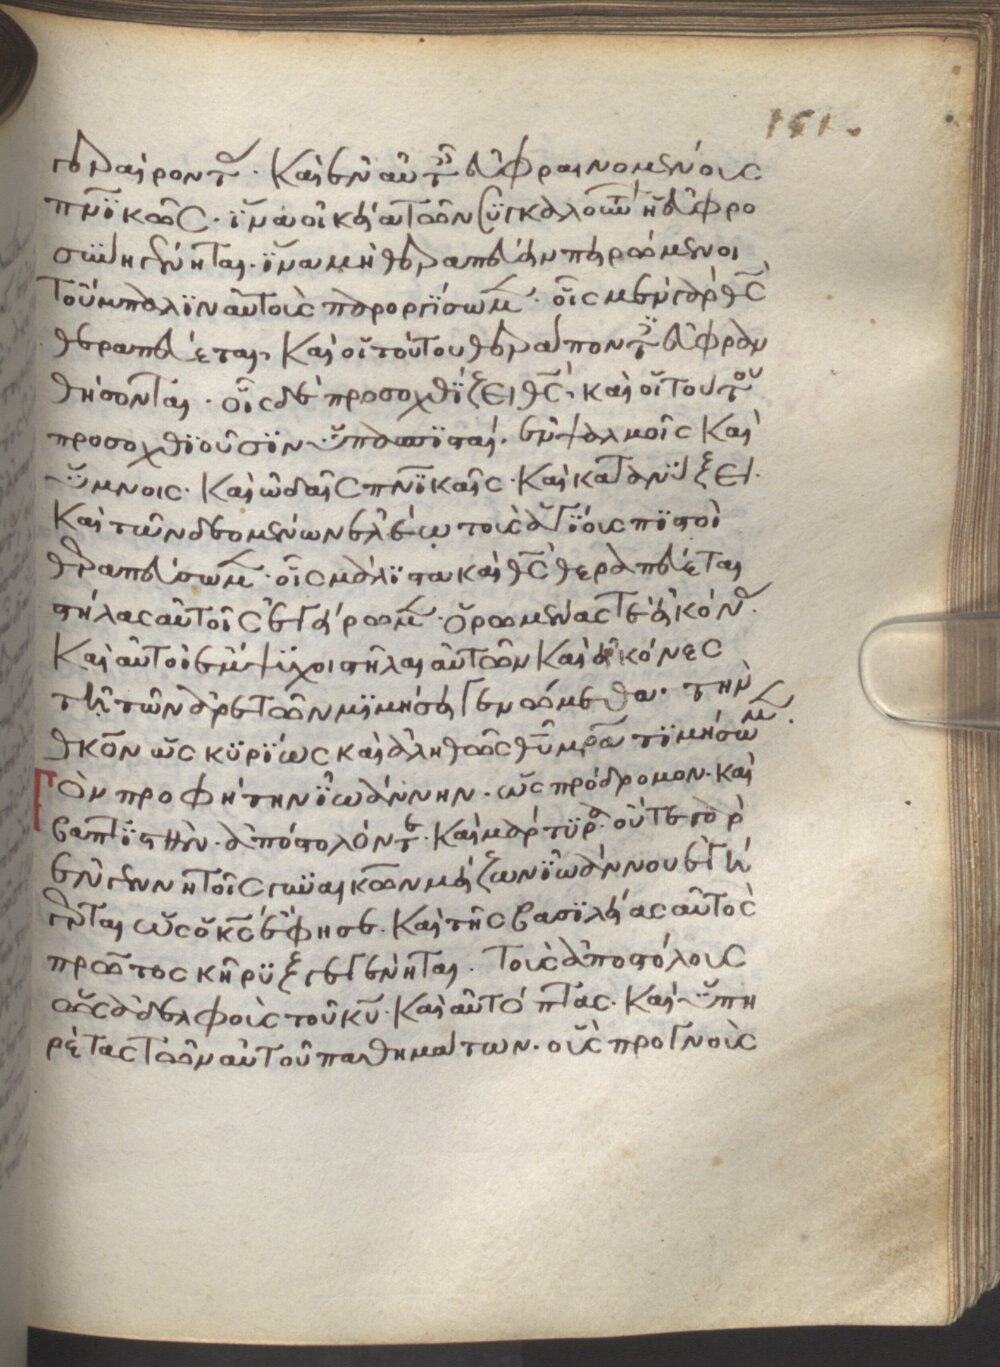 γεραίροντ· Καὶ ἐν αὐτοῖς εὐφραινομένοις
πνϊκῶς· ἵνα οἰκεία τῶν συγκαλούντ ἡ εὐφρο
σύνη γένηται· ἵνα μὴ θεραπεύειν πειρώμενοι
τοὔμπαλϊν αὐτοὺς παροργΐσωμ· οἷς μὲν γὰρ θς
θεραπεύεται, Καὶ οἱ τούτου θεράποντ εὐφραν
θήσονται· οἷς δὲ προσοχθΐζει θς, καὶ οἱ τούτου
προσοχθϊοῦσϊν ὑπασπϊσταί· ἐν ψαλμοῖς Καὶ
ὕμνοις· Καὶ ὠδαῖς πνϊκαῖς· Καὶ κατανύξει·
Καὶ τῶν δεομένων ἐλέω τοὺς ἁγΐοις πϊστοὶ
θεραπεύσωμ· οἷς μάλϊστα καὶ θς θεραπεύεται
στήλας αὐτοῖς ἐγείρωμ· ὁρωμένας τὲ εἰκόν·
Καὶ αὐτοὶ ἐμψΰχοι στῆλαι αὐτῶν Καὶ εἰκόνες
τῆ τῶν ἀρετῶν μϊμήσει γενώμεθα· τὴν
θκον ὡς κϋρΐως καὶ ἀληθῶς θυ μρα τϊμήσωμ·
Τὸν προφήτην ἰωάννην· ὡς πρόδρομον· καὶ
βαπτϊστὴν· ἀπόστολόν τε· Καὶ μάρτϋρα· οὔτε γὰρ
ἐν γεννητοῖς γυναικῶν μείζων ἰωάννου ἐγή
γερται ὡς ὁ κς ἔφησε· Καὶ τῆς βασϊλείας αὐτὸς
πρῶτος κῆρϋξ ἐγένηται· Τοὺς ἀποστόλοις
ὡς ἀδελφοὺς τοῦ κυ· Καὶ αὐτόπτας· Καὶ ὑπη
ρέτας τῶν αὐτοῦ παθημάτων· οὓς προγνοὺς
151.